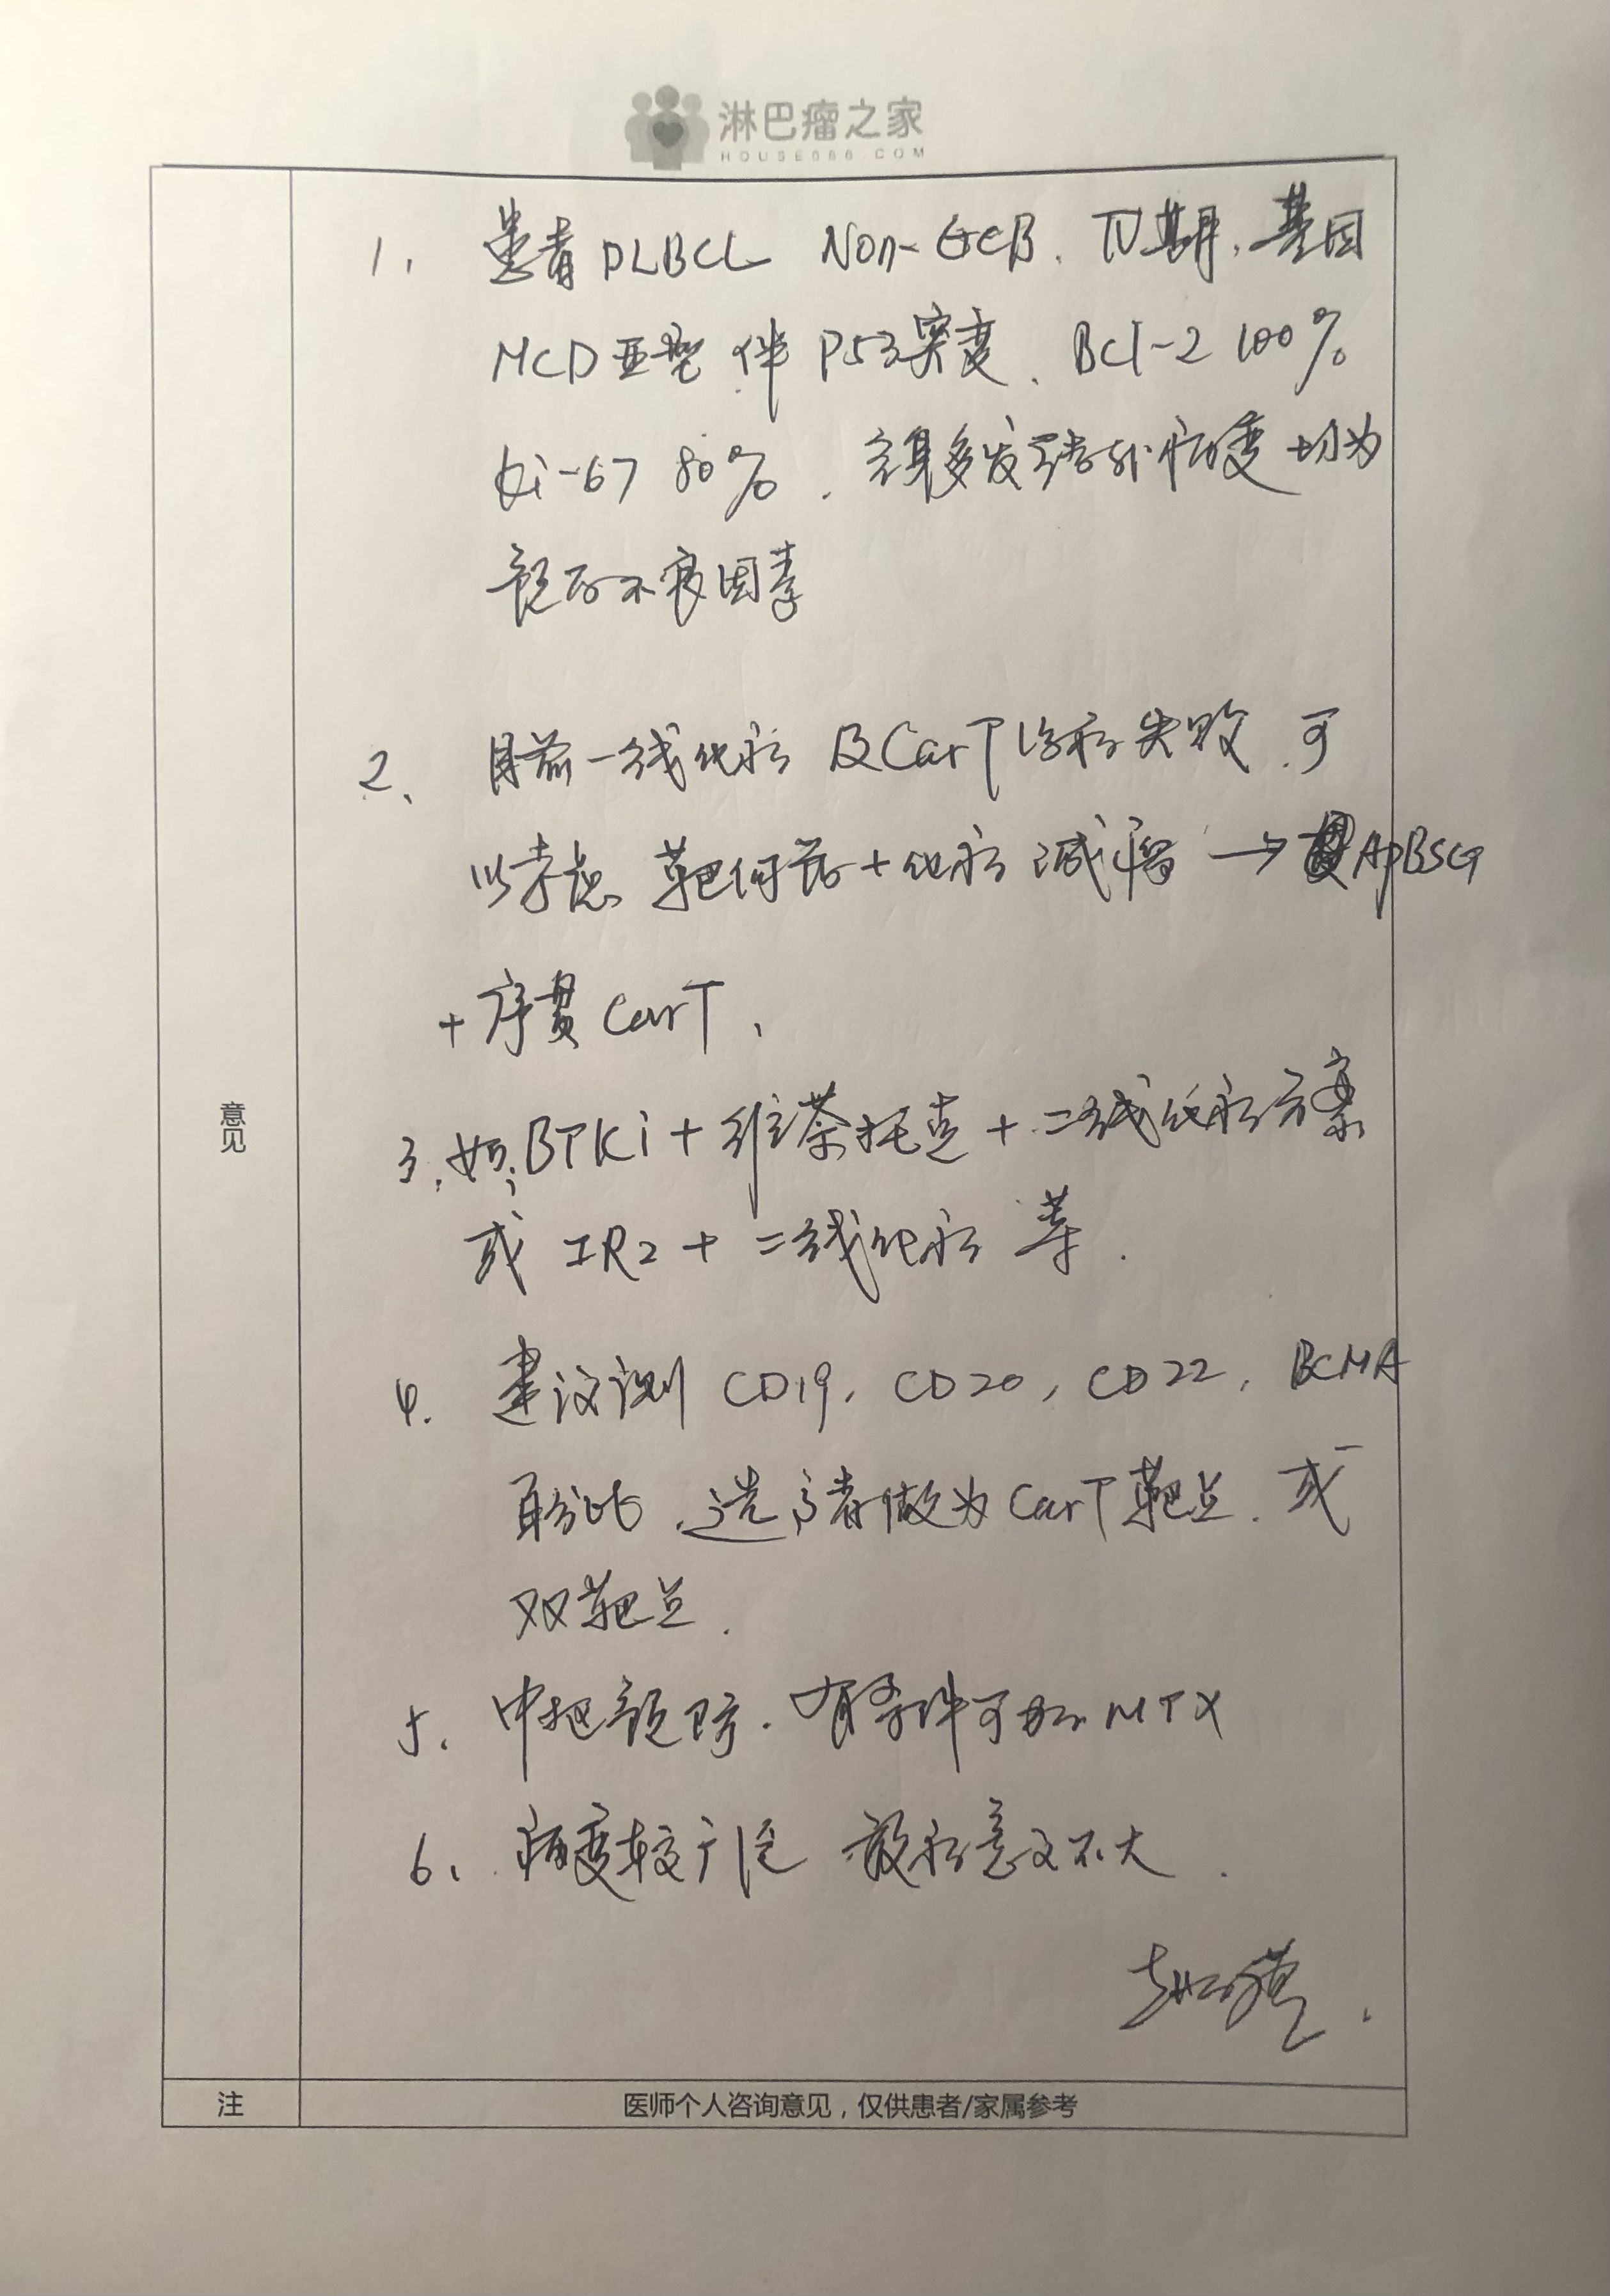 淋巴瘤之家
HOUSE086.COM
1. 患者DLBCL Non-GCB、IV期、基因
MCD亚型伴P53突变、Bcl-2 100%
Ki-67 80%、全身多发结外病变 均为
预后不良因素
2、目前一线化疗及CarT治疗失败、可
以考虑 靶向药+化疗 减瘤 → APBSCT
+序贯CarT、
3、如:BTKi+维奈托克+二线化疗方案
或 IR2+二线化疗 等.
4. 建议测 CD19, CD20, CD22, BCMA
百分比、选高者做为CarT靶点、或
双靶点.
5、中枢预防. 有条件可加MTX
6、病变较广泛 放疗意义不大.
意见
注
医师个人咨询意见，仅供患者/家属参考